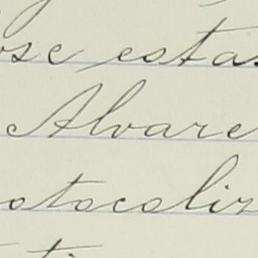 ose estas
Alvare
otocoliz